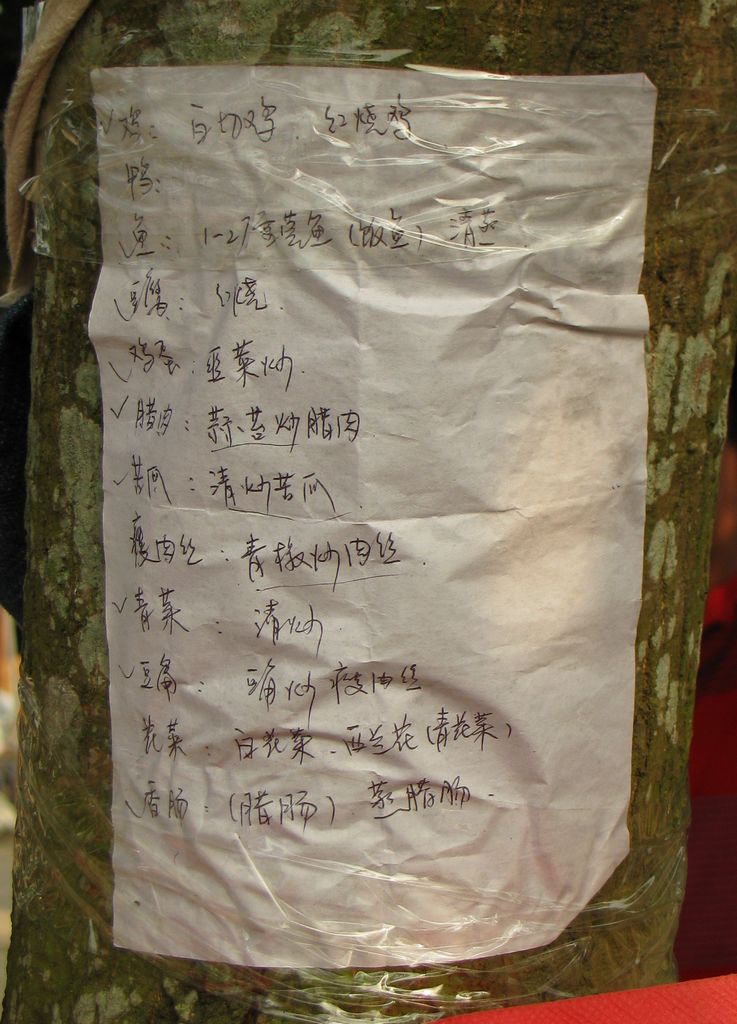 ✓鸡: 白切鸡. 红烧鸡
鸭:
✓鱼: 1-2斤 鱼 (鲩鱼) 清蒸.
✓豆腐: 红烧.
✓鸡蛋: 韭菜炒.
✓腊肉: 蒜苔炒腊肉
✓苦瓜: 清炒苦瓜
瘦肉丝: 青椒炒肉丝.
✓青菜: 清炒.
✓豆角: 豆角炒瘦肉丝
花菜: 白花菜. 西兰花(青花菜)
✓香肠: (腊肠) 蒸腊肠.